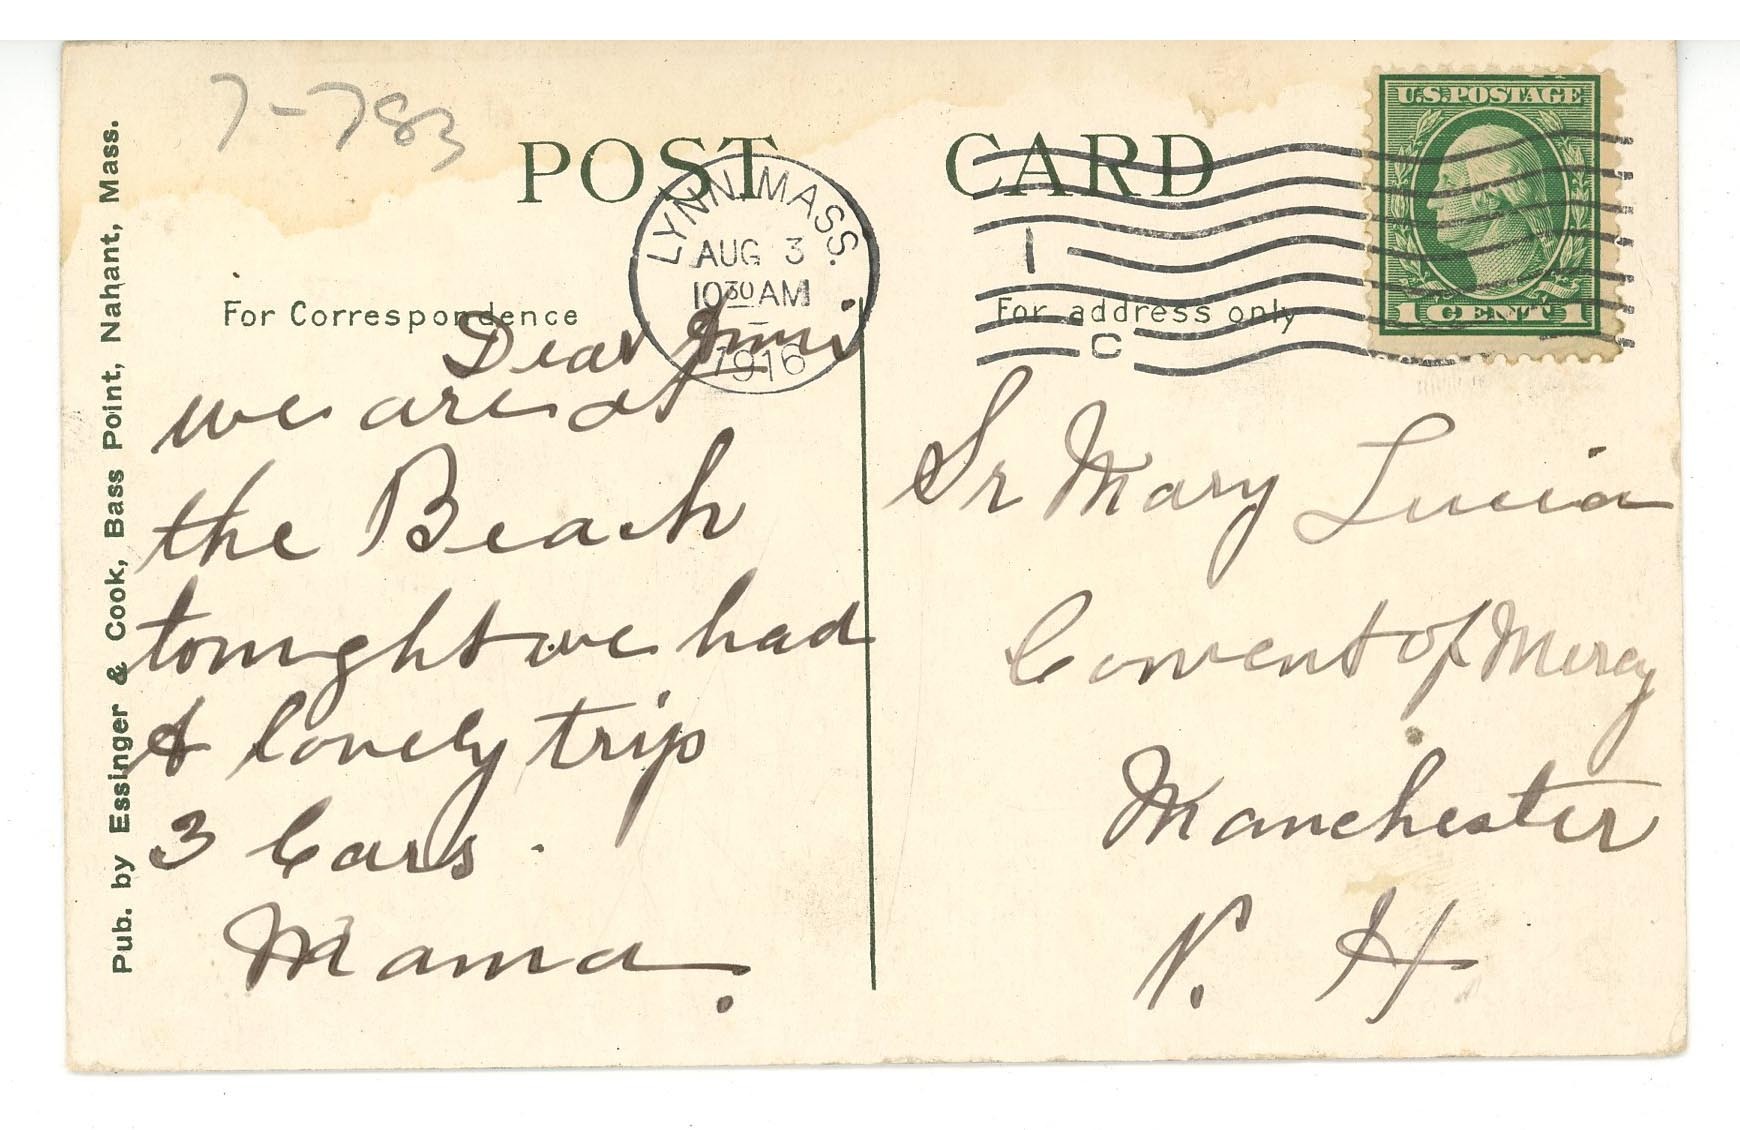 7-783
POST CARD
U.S. POSTAGE
1 CENT 1
LYNN, MASS.
AUG 3
10 30 AM
1916
1
C
For Correspondence
For address only
Dear
we are at
the Beach
tonight we had
A lovely trip
3 Cars.
Mama.
Sr Mary Lucia
Convent of Mercy
Manchester
N. H.
Pub. by Essinger & Cook, Bass Point, Nahant, Mass.